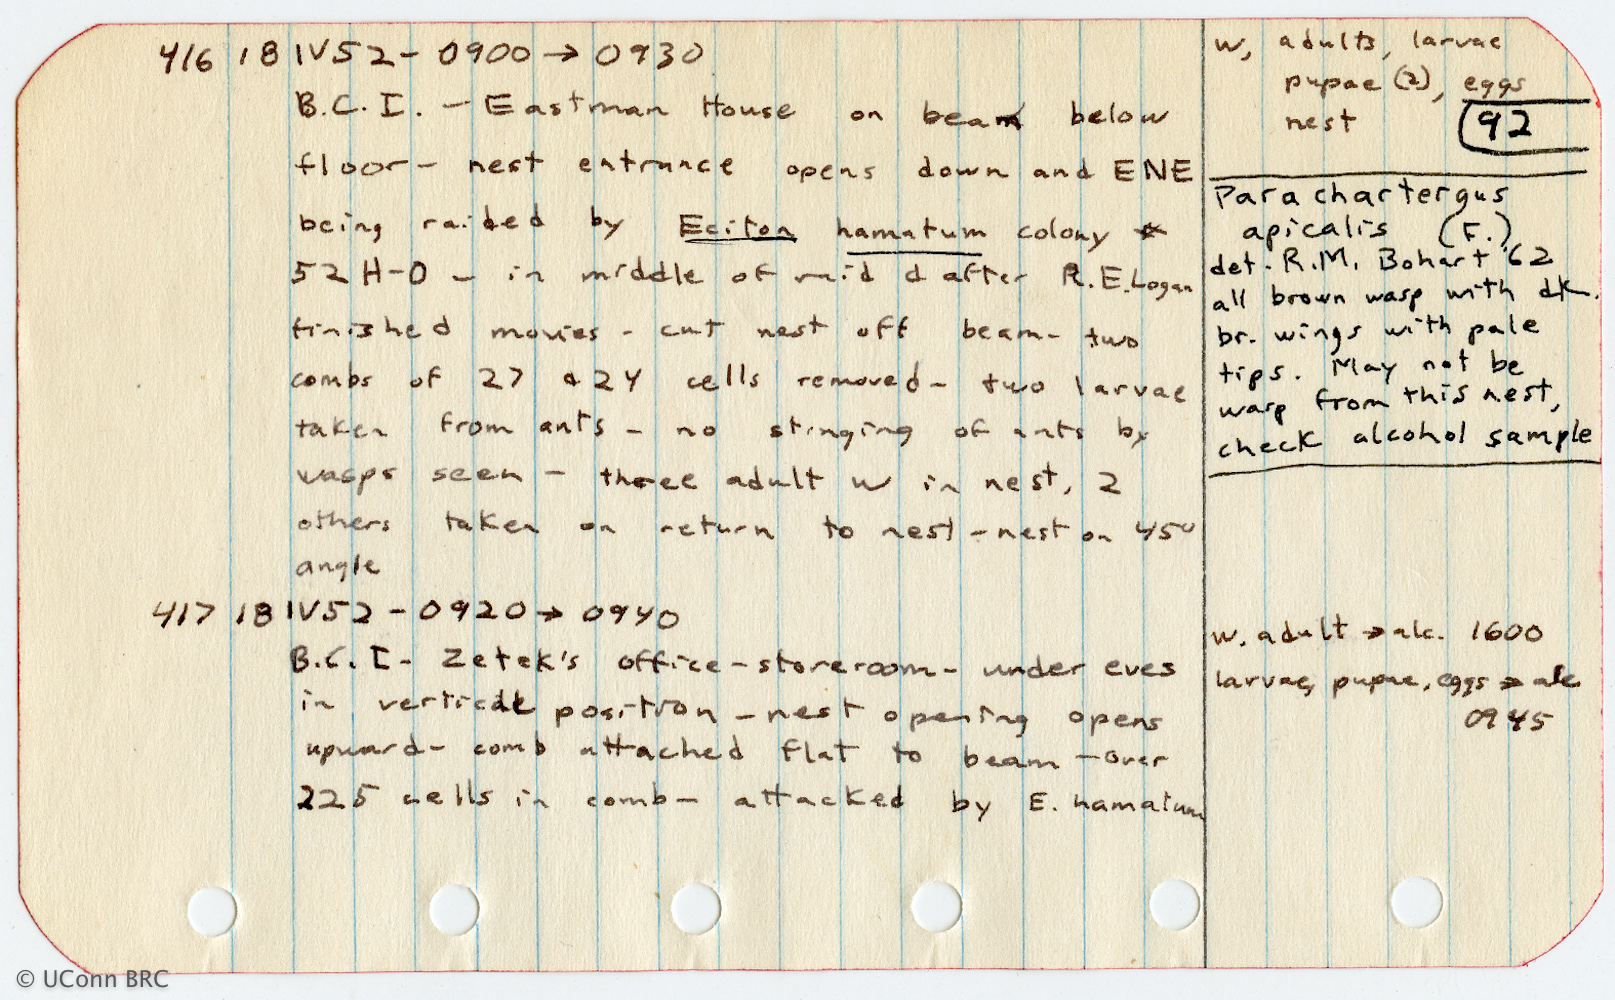 416 18 IV 52 - 0900 → 0930
B.C.I. - Eastman House on beam below
floor - nest entrance opens down and ENE
being raided by Eciton hamatum colony
52 H-O - in middle of raid & after R.E. Logan
finished movies - cut nest off beam - two
combs of 27 & 24 cells removed - two larvae
taken from ants - no stinging of ants by
wasps seen - three adult w in nest, 2
others taken on return to nest - nest on 45°
angle
417 18 IV 52 - 0920 → 0940
B.C.I - Zetek's office - storeroom - under eves
in vertical position - nest opening opens
upward - comb attached flat to beam - over
225 cells in comb - attacked by E. hamatum
w, adults, larvae
pupae (2), eggs
nest 92
Parachartergus
apicalis (F.)
det. R.M. Bohart '62
all brown wasp with dk.
br. wings with pale
tips. May not be
warp from this nest,
check alcohol sample
w. adult → alc. 1600
larvae, pupae, eggs → alc
0945
© UConn BRC